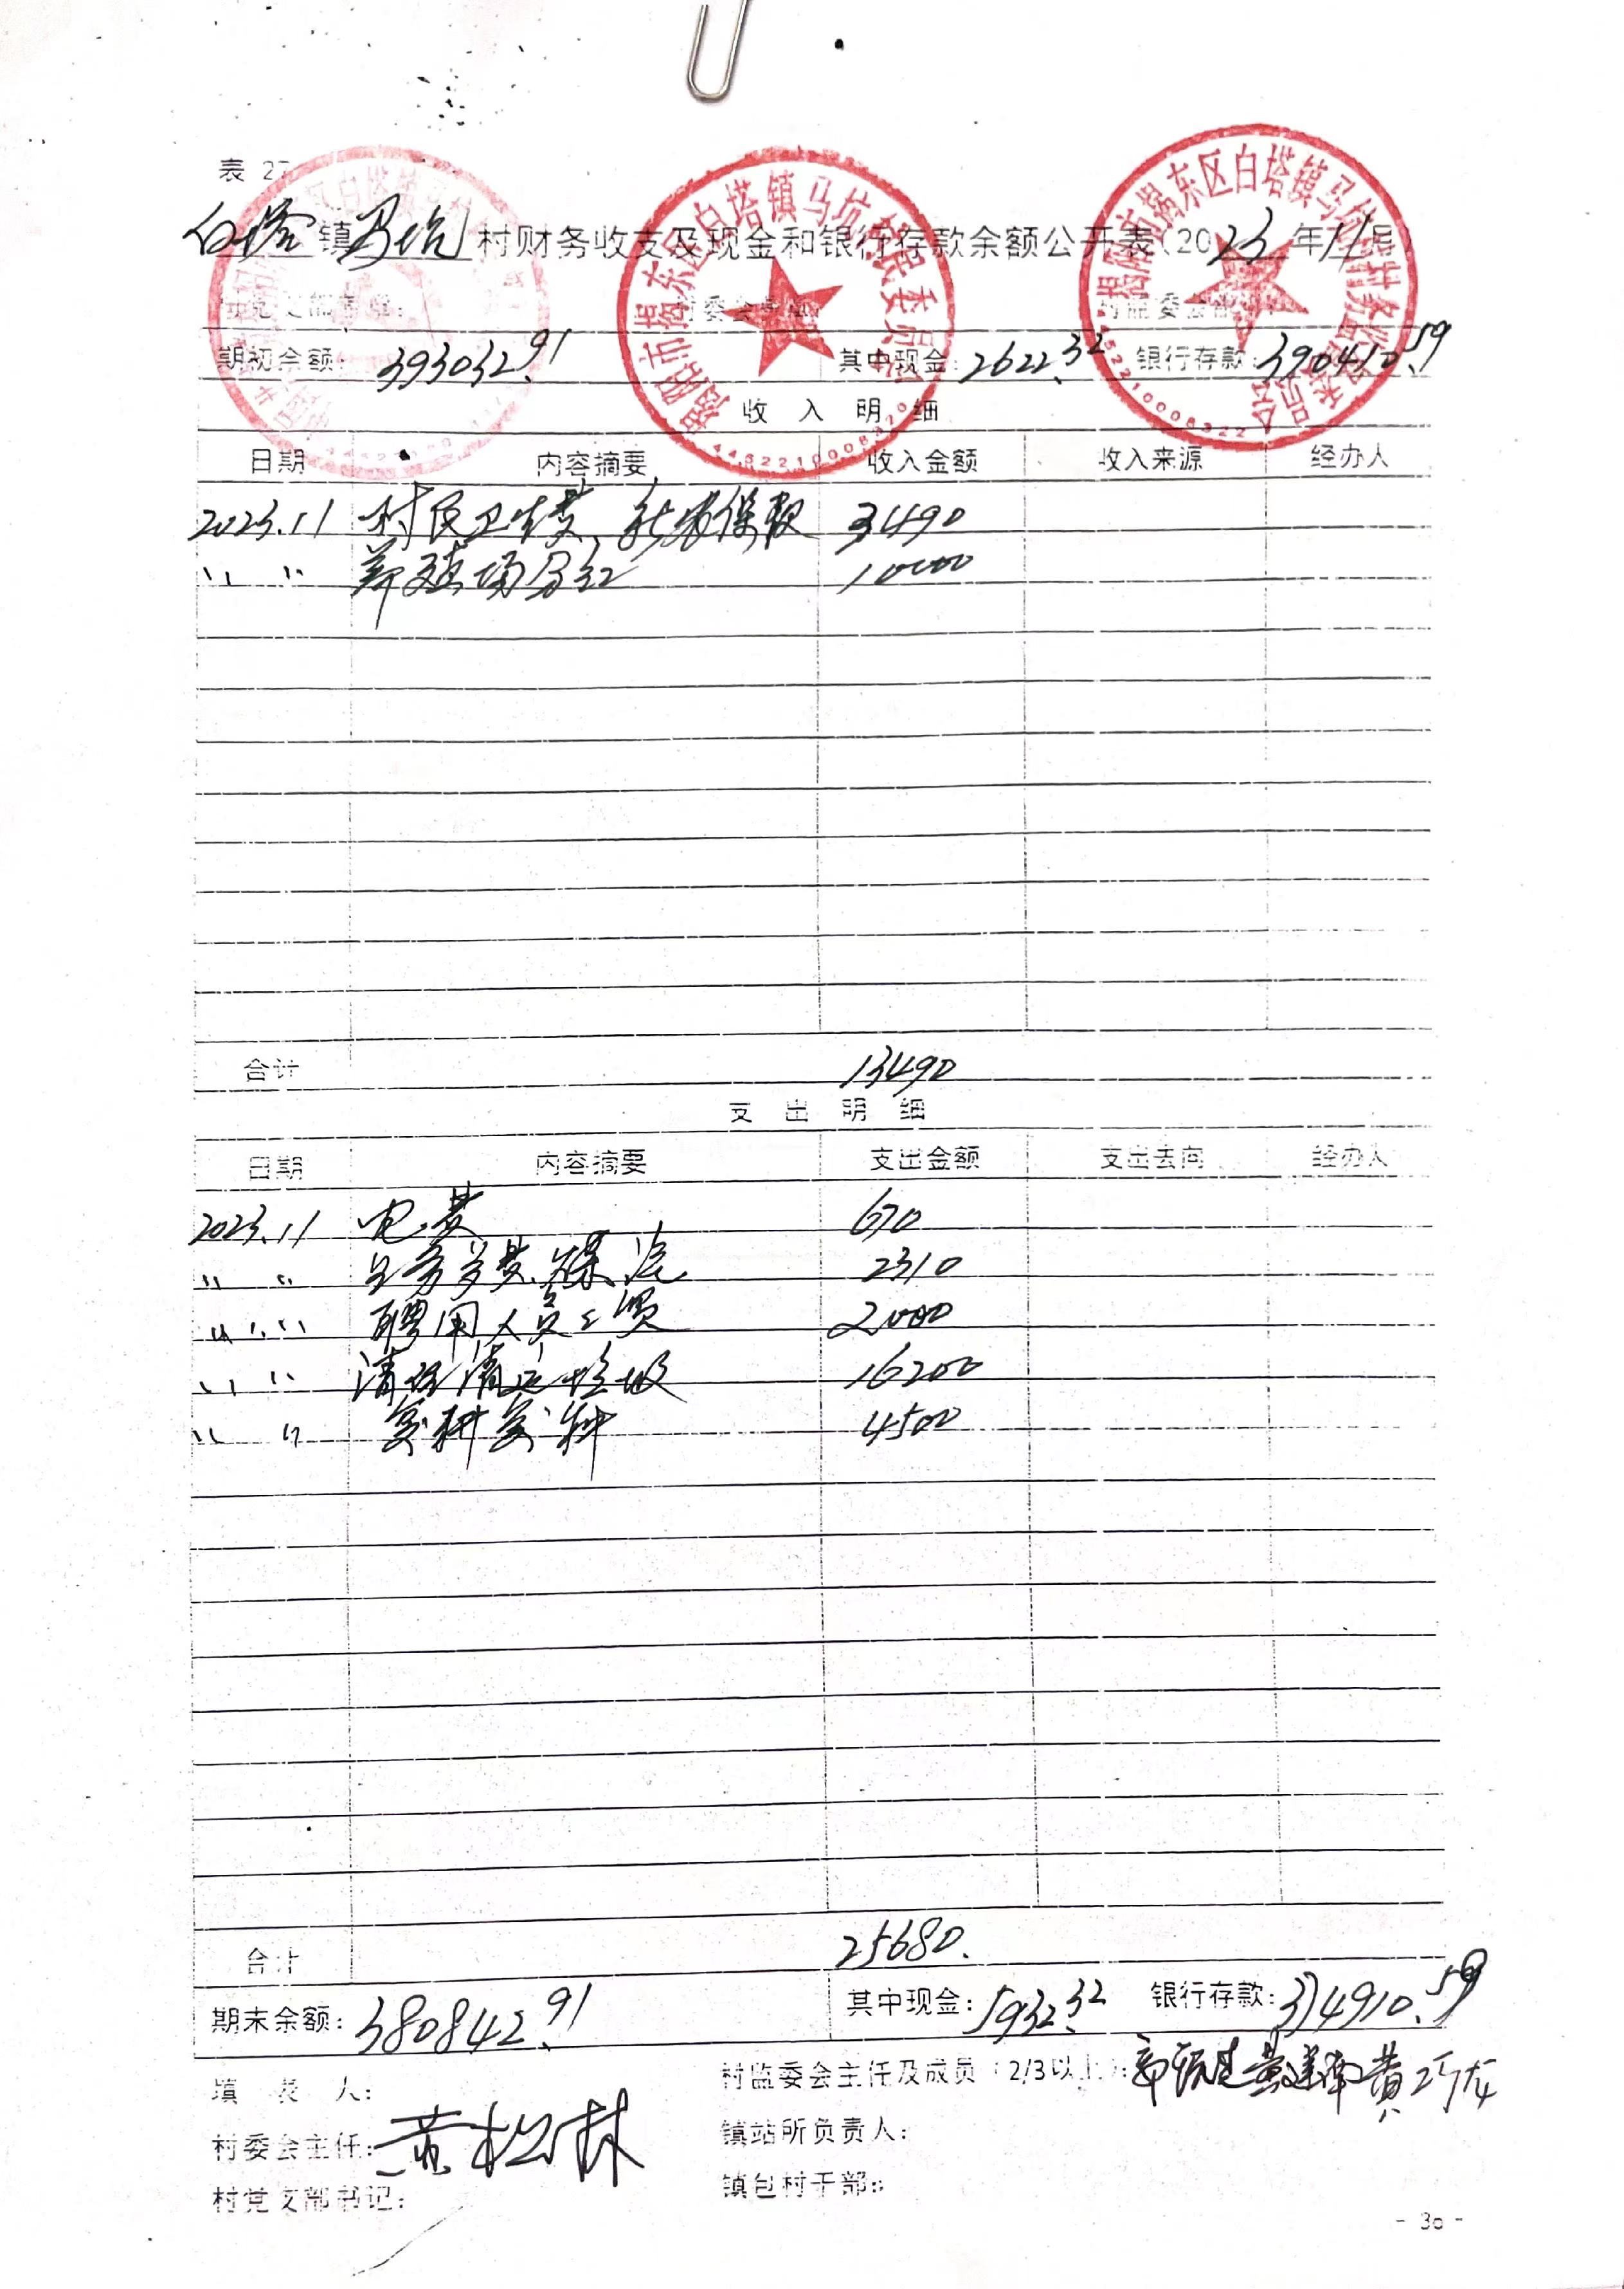 表 27
白塔镇马坑村财务收支及现金和银行存款余额公开表(2023年11月)
村党支部盖章: 村委会盖章: 村监委会盖章:
期初余额: 393032.91 其中现金: 2622.32 银行存款: 390410.59
收 入 明 细
日期 内容摘要 收入金额 收入来源 经办人
2023.11 村民卫生费、新农保款 3490
〃 〃 养殖场分红 10000
合计 13490
支 出 明 细
日期 内容摘要 支出金额 支出去向 经办人
2023.11 电费 670
〃 〃 煤 2310
〃 〃 聘用人员工资 2000
〃 〃 清理清运垃圾 16200
〃 〃 复耕复种 4500
合计 25680.
期末余额: 380842.91 其中现金: 5932.32 银行存款: 374910.59
填 表 人: 村监委会主任及成员(2/3以上): 黄
村委会主任: 黄松林 镇站所负责人:
村党支部书记: 镇包村干部:
- 30 -
揭阳市揭东区白塔镇马坑村民委员会
揭阳市揭东区白塔镇马坑村村务监督委员会